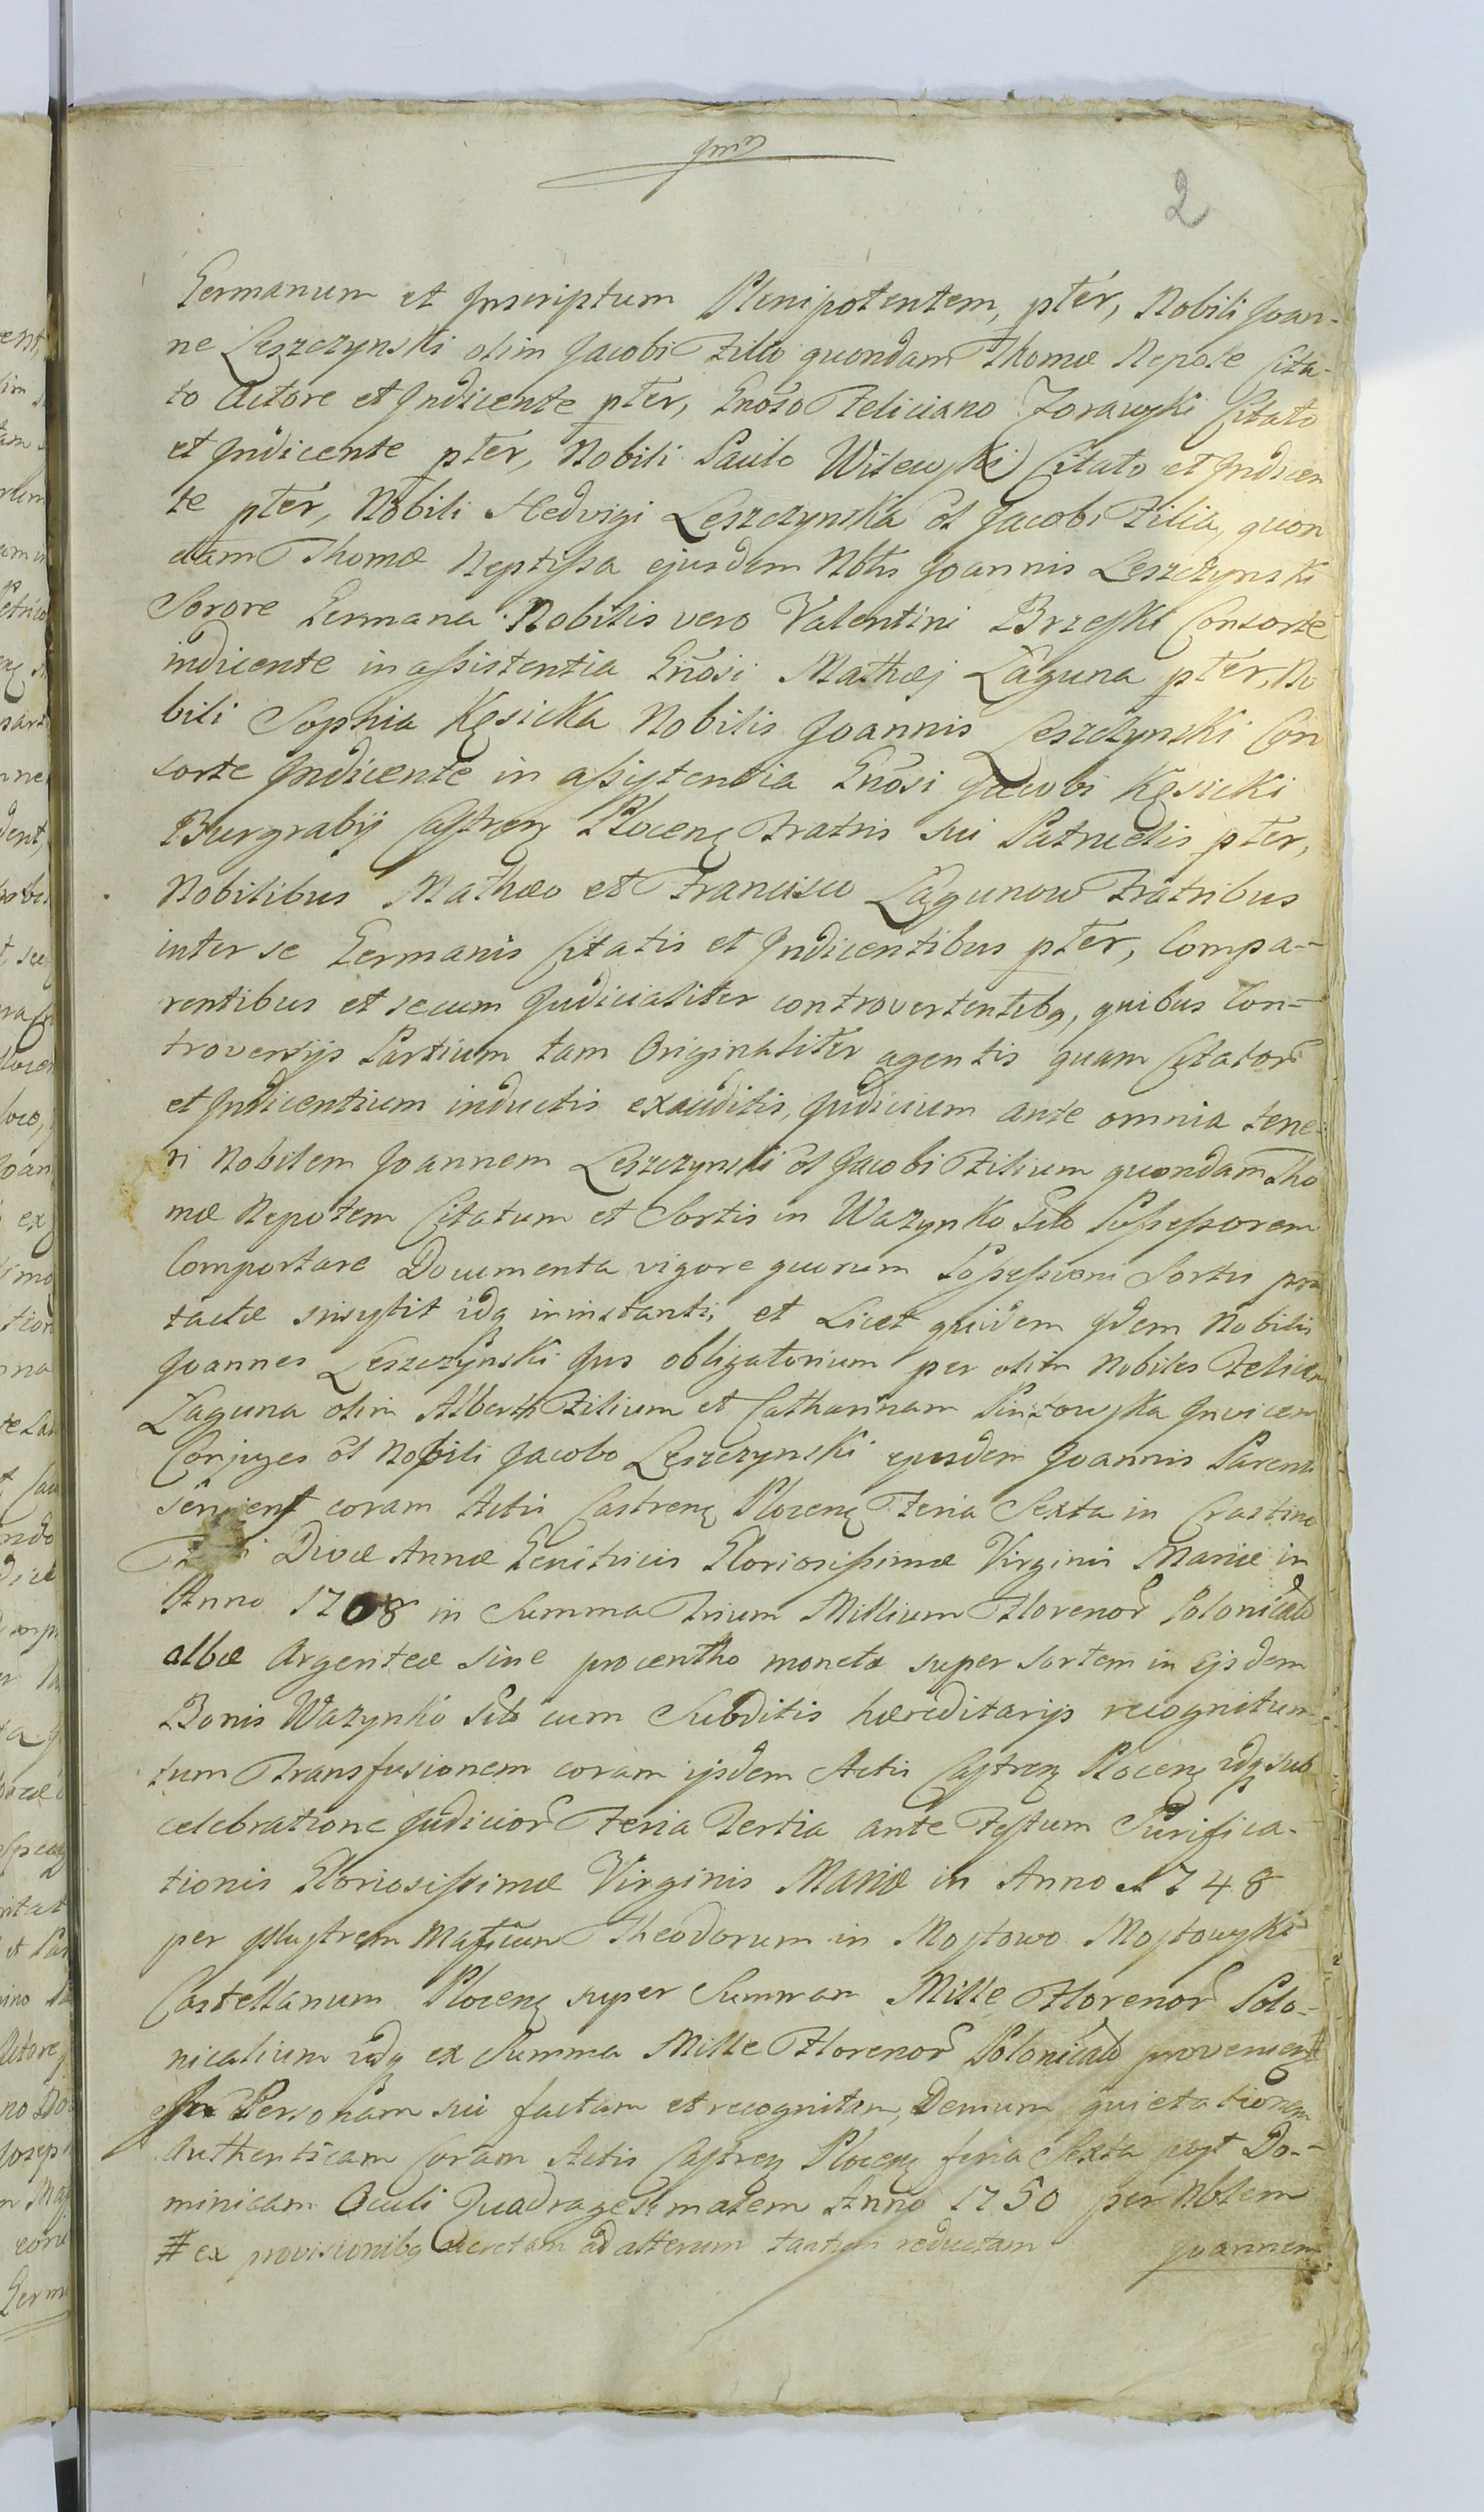 2
Germanum et Inscriptum Plenipotentem, pter, Nobili Joan-
ne Leszczynski olim Jacobi Filio quondam Thomæ Nepote Cita-
to Actore et Indicente pter, Gnoso Feliciano Zorawski Citato
et Indicente pter, Nobili Paulo Witewski Citato et Indicen
te pter, Nobili Hedvigi Leszczynska ol Jacobi Filia, quon
dam Thomæ Neptissa ejusdem Nblis Joannis Leszczynski
Sorore Germana Nobilis vero Valentini Brzeski Consorte
indicente in assistentia Gnosi Mathæj Laguna pter, No
bili Sophia Kęsicka Nobilis Joannis Leszczynski Con
sorte Indicente in assistentia Gnosi Jacobi Kęsicki
Burgrabij Castren Plocen Fratris sui Patruelis pter,
Nobilibus Mathæo et Francisco Łagunow Fratribus
inter se Germanis Citatis et Indicentibus pter, Compa-
rentibus et secum Judicialiter controvertentibq, quibus Con-
troversijs Partium tam Originaliter agentis quam Citator
et Indicentium inductis exauditis, Judicium ante omnia tene-
ri Nobilem Joannem Leszczynski ol Jacobi Filium quondam Tho
mæ Nepotem Citatum et Sortis in Wazynko Sito Possessorem
Comportare Documenta vigore quorum Possessioni Sortis præ
tactæ insistit idq in instanti, et Licet quidem Idem Nobilis
Joannes Leszczynski Jus obligatorium per olim Nobiles Felicem
Laguna olim Alberti Filium et Catharinam Invicem
Conjuges ol Nobili Jacobo Leszczynski ejusdem Joannis Parenti
servient coram Actis Castren Plocen Feria Sexta in Crastino
Divæ Annæ Genitricis Gloriosissimæ Virginis Mariæ in
Anno 1708 in Summa Trium Millium Florenor Polonicaliu
albæ Argenteæ sine procentho monetæ super sortem in ejsdem
Bonis Wazynko Sito cum Subditis hæreditarijs recognitum
tum Transfusionem coram ijsdem Actis Castren Plocen idq sub
celebratione Judicior Feria Tertia ante Festum Purifica-
tionis Gloriosissimæ Virginis Mariæ in Anno 1748
per Illustrem Mafficum Theodorum in Mostowo Mostowski
Castellanum Plocen super Summam Mille Florenor Polo-
nicalium idq ex Summa Mille Florenor Polonicaliu provenient #
In Personam sui factam et recognitam, Demum quietationem
Authenticam Coram Actis Castren Plocen feria Sexta post Do-
minicam Oculi Quadragesimalem Anno 1750 per Nblem
# ex provisionibq decretam ad alterum tantum reductam Joannem